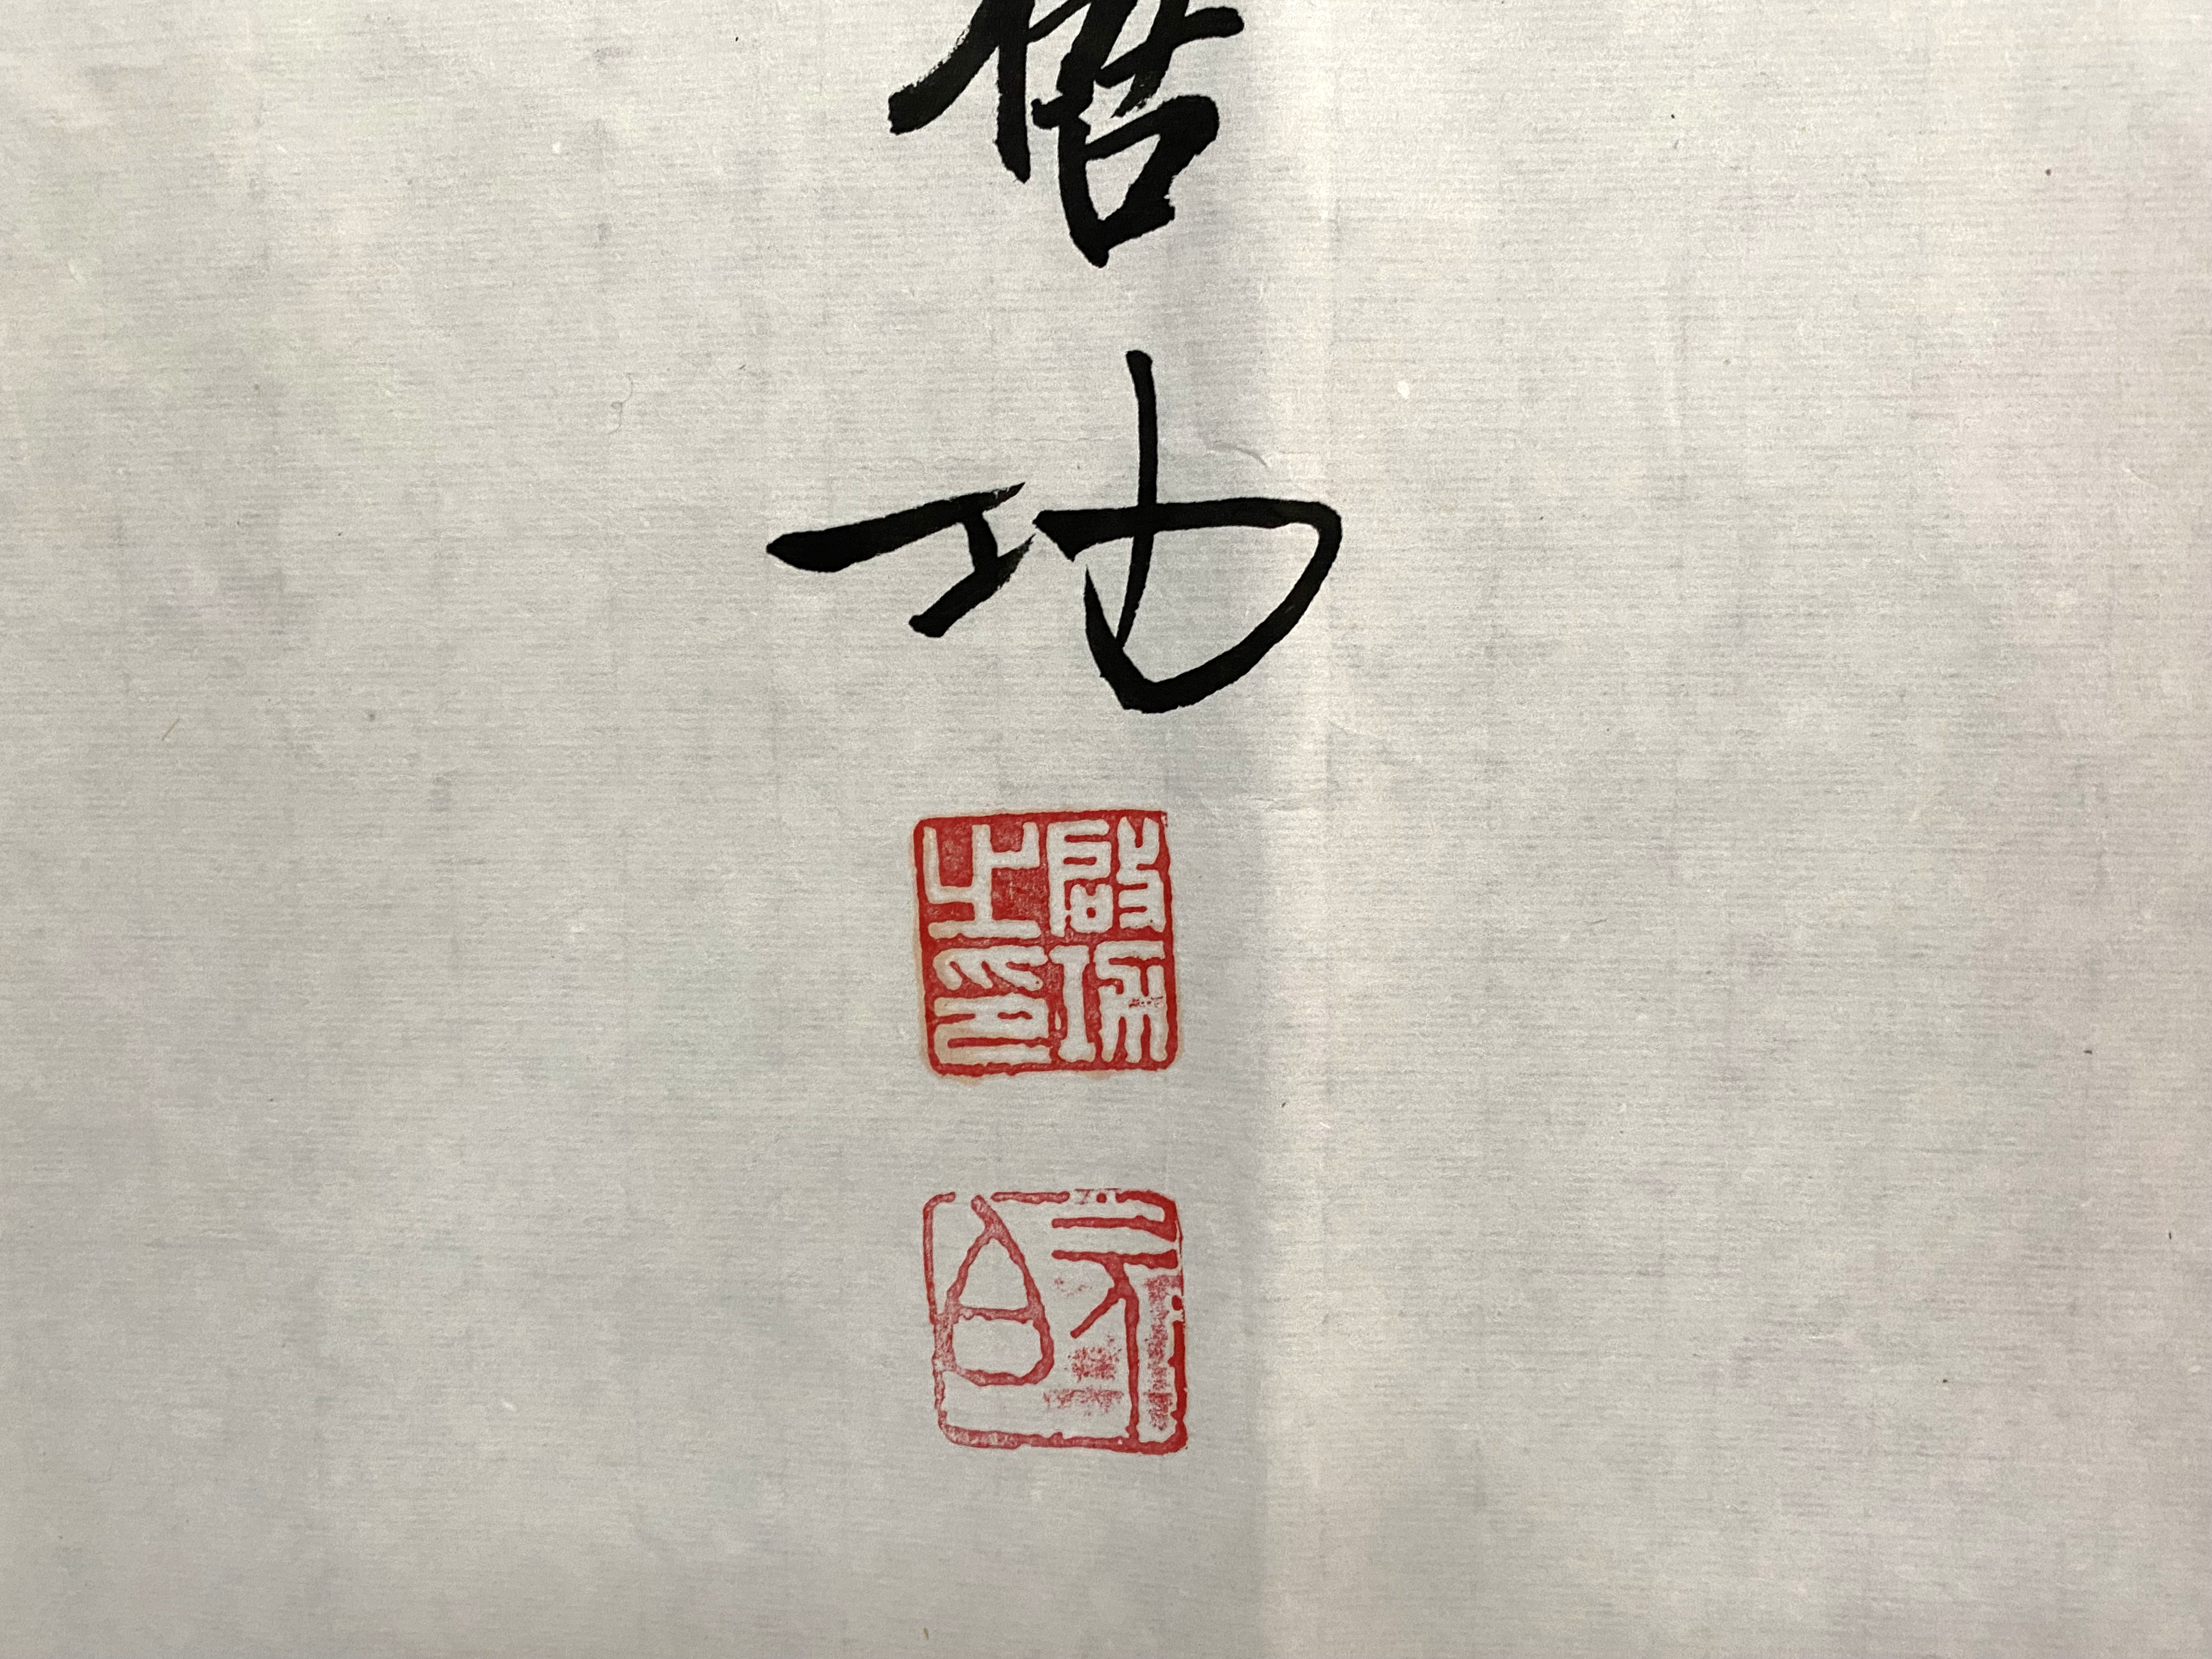 啓功
啟功之印
元白